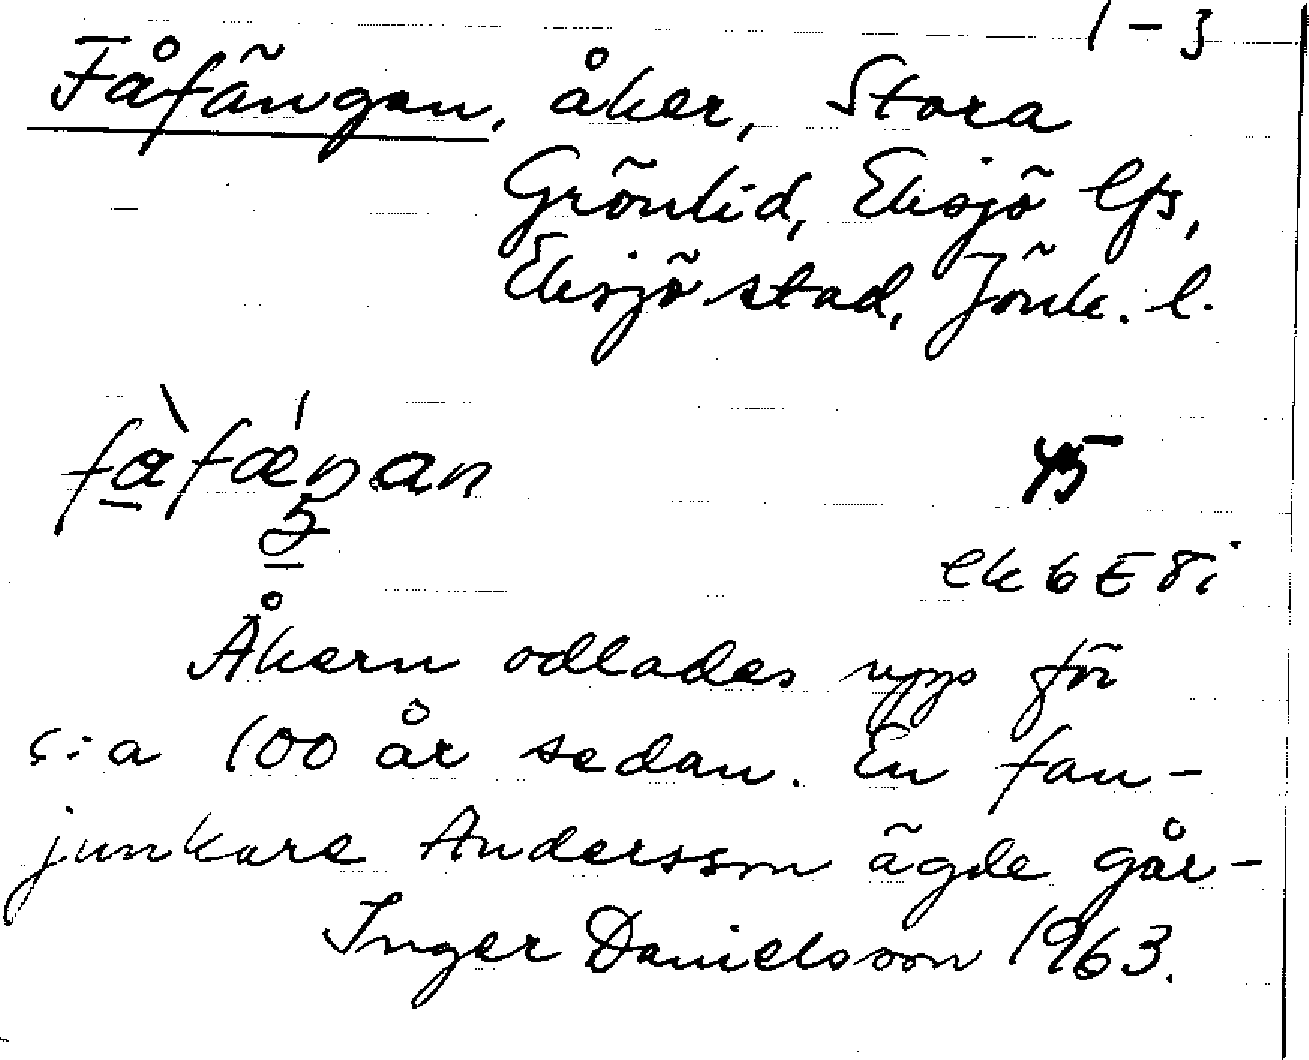 1-3
Fåfängan, åker, Stora
Grönlid, Eksjö lfs,
Eksjö stad, Jönk. l.
45
ek 6 E 8 i
Åkern odlades upp för
c:a 100 år sedan. En fan-
junkare Andersson ägde går-
Inger Danielsson 1963.